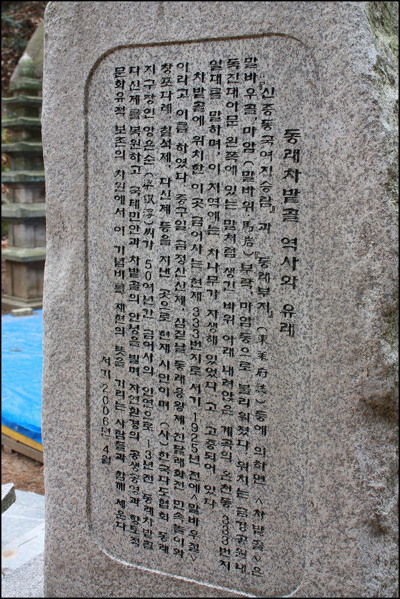 동래차밭골 역사와 유래
『신증동국여지승람』과 『동래부지』(東萊府誌) 등에 의하면 <차밭골>은
말바우골, 마암(말바위 馬岩) 부락, 마암등으로 불리워졌다. 위치는 금강공원내
독진대아문 왼쪽에 있는 말처럼 생긴 바위 아래 내려앉은 계곡의 온천동 383번지
일대를 말하며, 이 지역에는 차나무가 자생해 있었다고 고증되어 있다.
차밭골에 위치한 이곳 금어사는 현재 333번지로 서기 1925년 전에 <말바우절>
이라고 이름 하였다. 중구일 금정산산제, 삼짇날 동래용왕제, 진달래화전 민속놀이와
창포다례, 칠석제, 다신제 등을 지낸 곳으로 현재 시인이며, (사)한국다도협회 동래
지구장인 양은순 씨가 50여년간 금어사의 인연으로 13년전 동래차밭골
다신제를 복원하고 국태민안과 차밭골의 안녕을 빌며, 자연환경의 공생공영과 향토적
문화유적 보존의 차원에서 이 기념비를 재현의 뜻을 기리는 사람들과 함께 세운다.
서기 2006년 4월